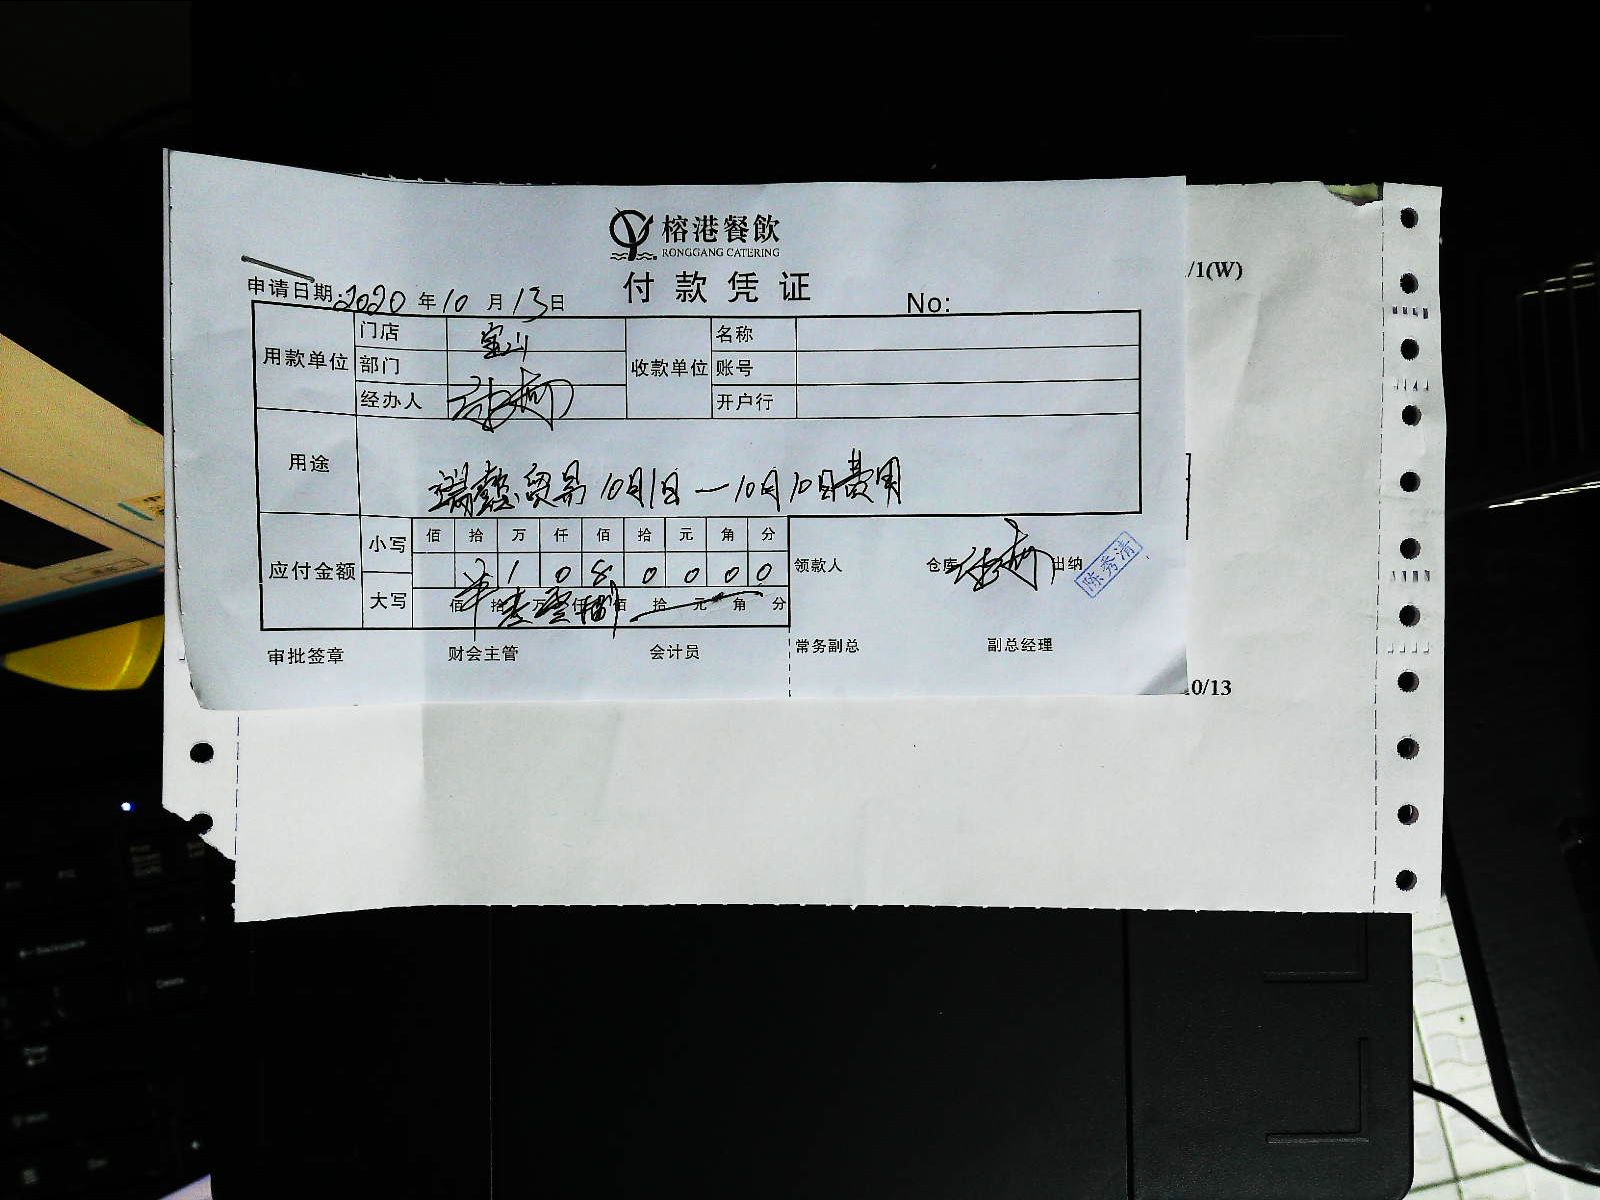 榕港餐飲
RONGGANG CATERING
付款凭证
申请日期:2020年10月13日
No:
/1(W)
用款单位 门店 宝山 收款单位 名称
部门 账号
经办人 开户行
用途 瑞鑫贸易10月1日—10月10日费用
应付金额 小写 佰 拾 万 仟 佰 拾 元 角 分
1 0 8 0 0 0 0
大写 佰 拾 万 仟 佰 拾 元 角 分
领款人 仓库 出纳 陈秀清
审批签章 财会主管 会计员 常务副总 副总经理
0/13